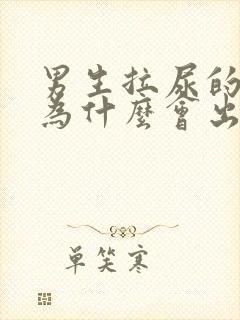 男生拉尿的
為什麼會出
单笑寒